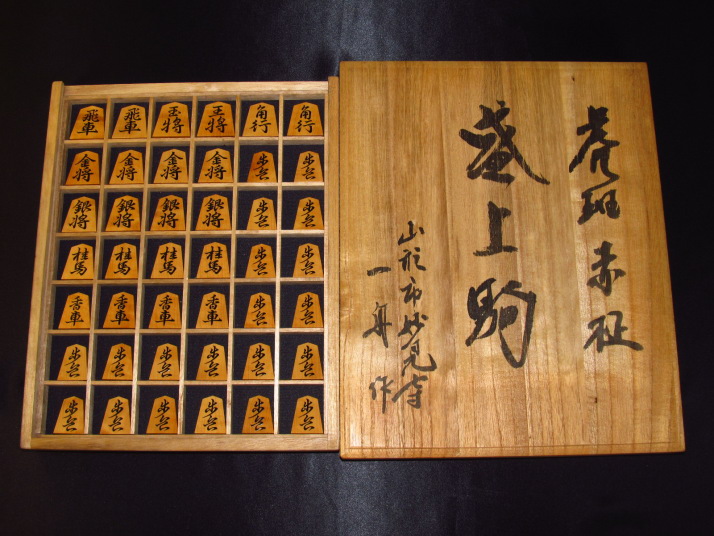 飛車 飛車 玉将 王将 角行 角行
金将 金将 金将 金将 歩兵 歩兵
銀将 銀将 銀将 銀将 歩兵 歩兵
桂馬 桂馬 桂馬 桂馬 歩兵 歩兵
香車 香車 香車 香車 歩兵 歩兵
歩兵 歩兵 歩兵 歩兵 歩兵 歩兵
歩兵 歩兵 歩兵 歩兵 歩兵 歩兵
虎斑赤柾
盛上駒
山形市妙見寺
一舟作